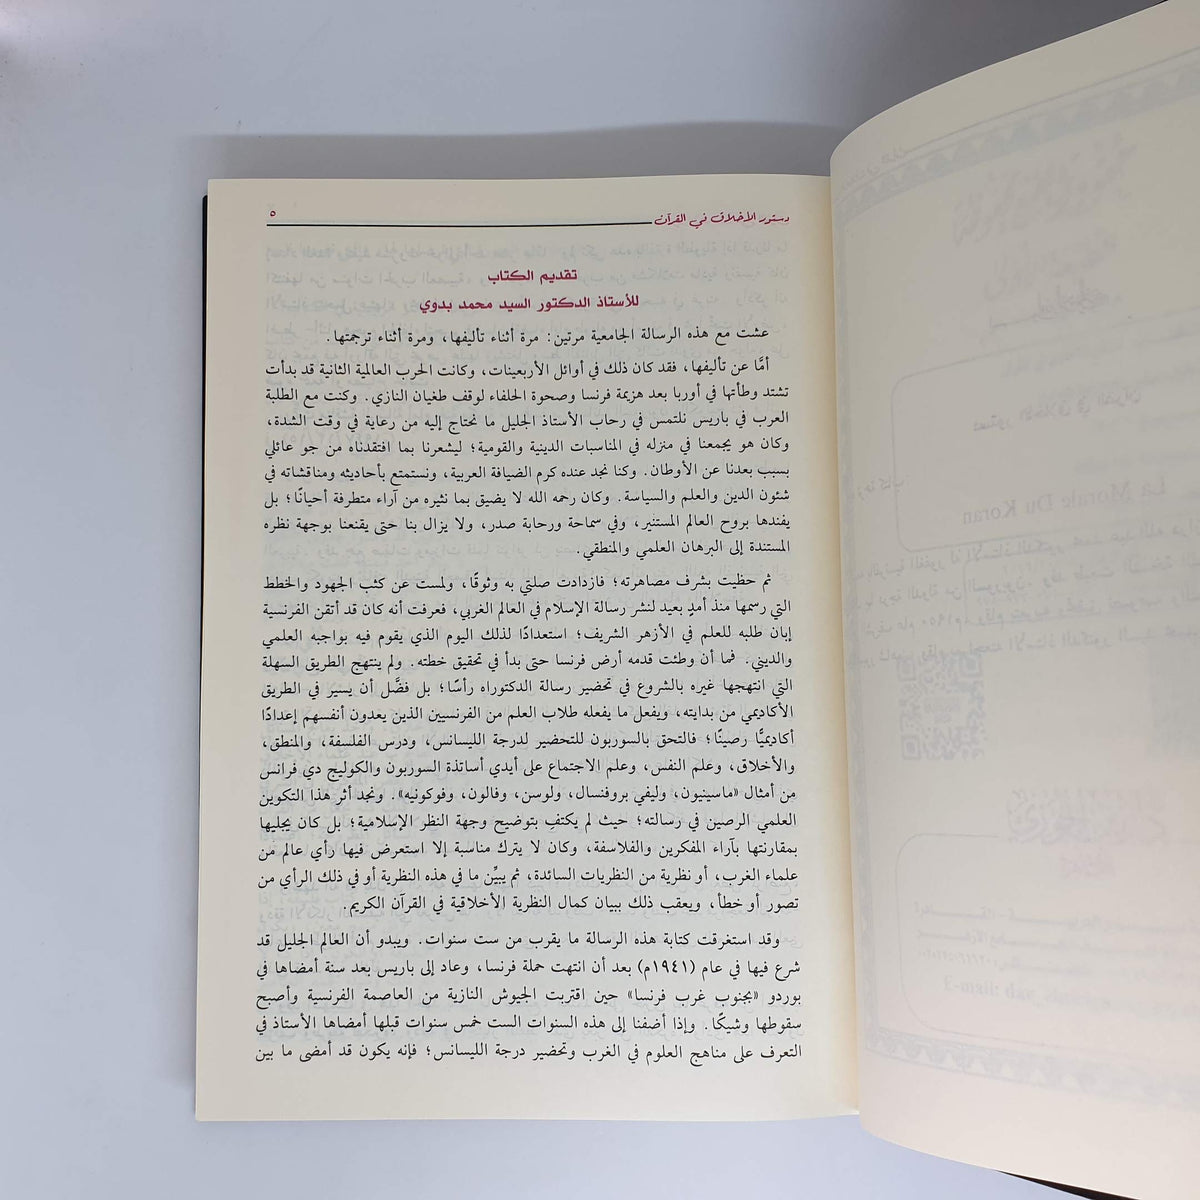 دستور الأخلاق في القرآن ٥
تقديم الكتاب
للأستاذ الدكتور السيد محمد بدوي
عشت مع هذه الرسالة الجامعية مرتين: مرة أثناء تأليفها، ومرة أثناء ترجمتها.
أمَّا عن تأليفها، فقد كان ذلك في أوائل الأربعينات، وكانت الحرب العالمية الثانية قد بدأت
تشتد وطأتها في أوربا بعد هزيمة فرنسا وصحوة الحلفاء لوقف طغيان النازي. وكنت مع الطلبة
العرب في باريس نلتمس في رحاب الأستاذ الجليل ما نحتاج إليه من رعاية في وقت الشدة،
وكان هو يجمعنا في منزله في المناسبات الدينية والقومية؛ ليشعرنا بما افتقدناه من جو عائلي
بسبب بعدنا عن الأوطان. وكنا نجد عنده كرم الضيافة العربية، ونستمتع بأحاديثه ومناقشاته في
شئون الدين والعلم والسياسة. وكان رحمه الله لا يضيق بما نثيره من آراء متطرفة أحيانًا؛ بل
يفندها بروح العالم المستنير، وفي سماحة ورحابة صدر، ولا يزال بنا حتى يقنعنا بوجهة نظره
المستندة إلى البرهان العلمي والمنطقي.
ثم حظيت بشرف مصاهرته؛ فازدادت صلتي به وثوقًا، ولمست عن كثب الجهود والخطط
التي رسمها منذ أمدٍ بعيد لنشر رسالة الإسلام في العالم الغربي، فعرفت أنه كان قد أتقن الفرنسية
إبان طلبه للعلم في الأزهر الشريف؛ استعدادًا لذلك اليوم الذي يقوم فيه بواجبه العلمي
والديني. فما أن وطئت قدمه أرض فرنسا حتى بدأ في تحقيق خطته. ولم ينتهج الطريق السهلة
التي انتهجها غيره بالشروع في تحضير رسالة الدكتوراه رأسًا؛ بل فضَّل أن يسير في الطريق
الأكاديمي من بدايته، ويفعل ما يفعله طلاب العلم من الفرنسيين الذين يعدون أنفسهم إعدادًا
أكاديميًّا رصينًا؛ فالتحق بالسوربون للتحضير لدرجة الليسانس، ودرس الفلسفة، والمنطق،
والأخلاق، وعلم النفس، وعلم الاجتماع على أيدي أساتذة السوربون والكوليج دي فرانس
من أمثال «ماسينيون، وليفي بروفنسال، ولوسن، وفالون، وفوكونيه». ونجد أثر هذا التكوين
العلمي الرصين في رسالته؛ حيث لم يكتفِ بتوضيح وجهة النظر الإسلامية؛ بل كان يجليها
بمقارنتها بآراء المفكرين والفلاسفة، وكان لا يترك مناسبة إلا استعرض فيها رأي عالم من
علماء الغرب، أو نظرية من النظريات السائدة، ثم يبيِّن ما في هذه النظرية أو في ذلك الرأي من
تصور أو خطأ، ويعقب ذلك ببيان كمال النظرية الأخلاقية في القرآن الكريم.
وقد استغرقت كتابة هذه الرسالة ما يقرب من ست سنوات. ويبدو أن العالم الجليل قد
شرع فيها في عام (١٩٤١م) بعد أن انتهت حملة فرنسا، وعاد إلى باريس بعد سنة أمضاها في
بوردو «بجنوب غرب فرنسا» حين اقتربت الجيوش النازية من العاصمة الفرنسية وأصبح
سقوطها وشيكًا. وإذا أضفنا إلى هذه السنوات الست خمس سنوات قبلها أمضاها الأستاذ في
التعرف على مناهج العلوم في الغرب وتحضير درجة الليسانس؛ فإنه يكون قد أمضى ما بين
La Morale Du Koran